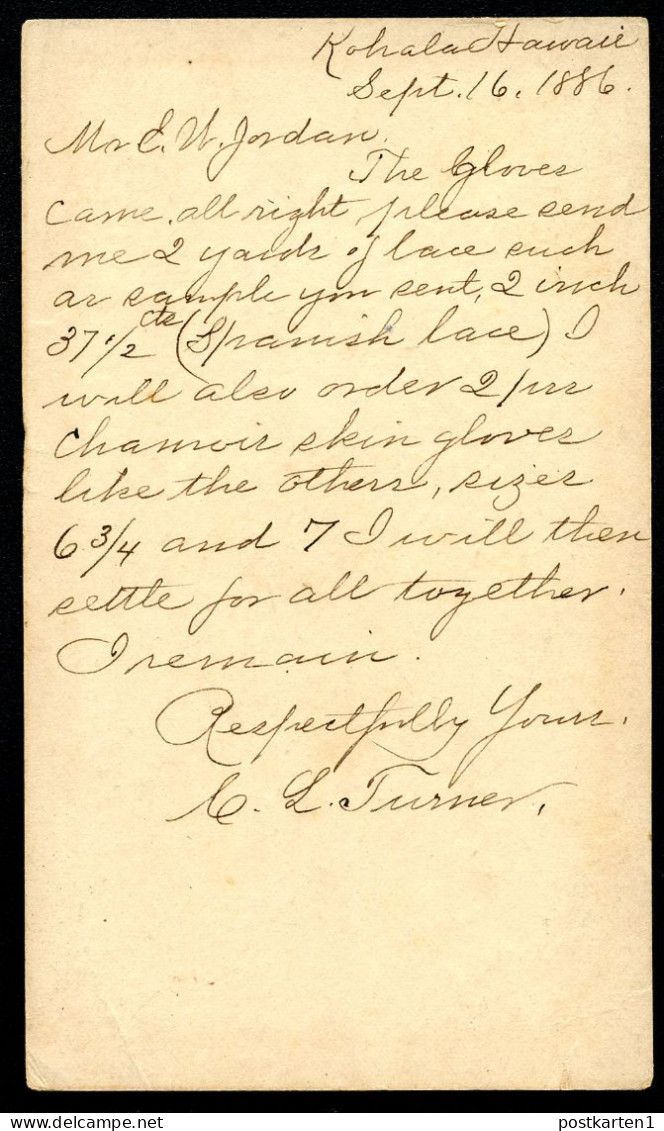 Kohala Hawaii
Sept. 16. 1886.
Mr E. W. Jordan.
The Gloves
came all right, please send
me 2 yards of lace such
as sample you sent, 2 inch
37 1/2 cts (Spanish lace) I
will also order 2 prs
Chamois skin gloves
like the others, sizes
6 3/4 and 7 I will then
settle for all together.
I remain.
Respectfully Yours.
C. L. Turner.
postkarten1